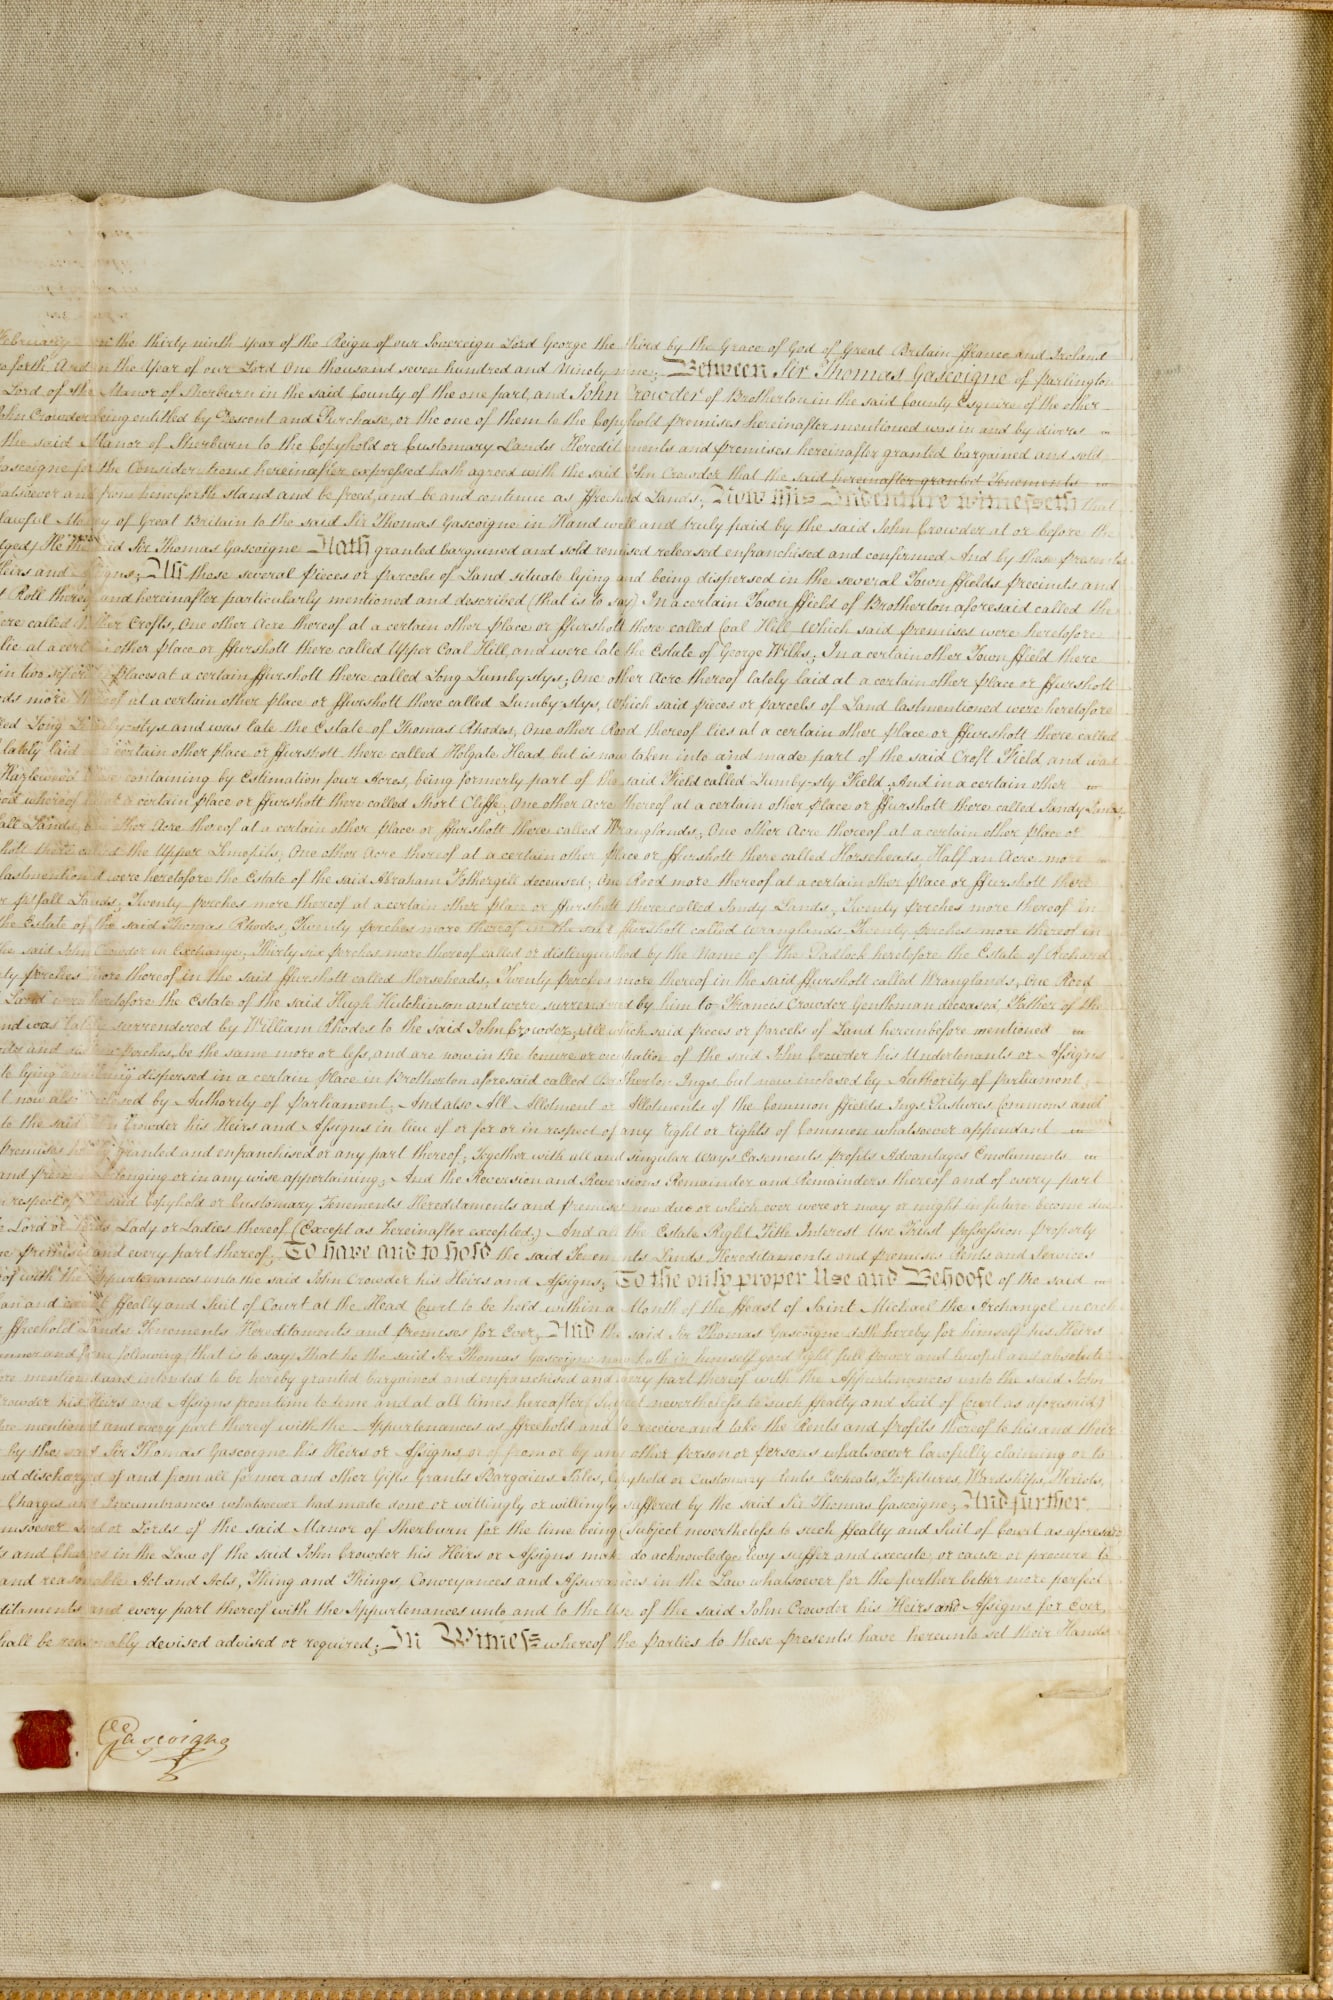 February in the thirty ninth Year of the Reign of our Sovereign Lord George the third by the Grace of God of Great Britain ffrance and Ireland
so forth And in the Year of our Lord One thousand seven hundred and Ninety nine; Between Sir Thomas Gascoigne of Parlington
Lord of the Manor of Sherburn in the said County of the one part, and John Crowder of Brotherton in the said County Esquire of the other
John Crowder being entitled by Descent and Purchase, or the one of them to the Copyhold premises hereinafter mentioned was in and by divers
the said Manor of Sherburn to the Copyhold or Customary Lands Hereditments and premises hereinafter granted bargained and sold
Gascoigne for the Considerations hereinafter expressed hath agreed with the said John Crowder that the said hereinafter granted Tenements
whatsoever and from henceforth stand and be freed, and be and continue as ffreehold Lands; Now this Indenture witnesseth that
lawful Money of Great Britain to the said Sir Thomas Gascoigne in Hand well and truly paid by the said John Crowder at or before the
He the said Sir Thomas Gascoigne Hath granted bargained and sold remised released enfranchised and confirmed And by these presents
Heirs and Assigns; All those several pieces or parcels of Land situate lying and being dispersed in the several Town ffields, precincts and
Roll thereof and hereinafter particularly mentioned and described (that is to say) In a certain Town ffield of Brotherton aforesaid called the
there called Crofts, One other Acre thereof at a certain other place or ffurshott there called Coal Hill Which said premises were heretofore
lie at a certain other place or ffurshott there called Upper Coal Hill, and were late the Estate of George Wilks; In a certain other Town ffield there
in two several places at a certain ffurshott there called Long Lumbyslys; One other Acre thereof lately laid at a certain other place or ffurshott
more thereof at a certain other place or ffurshott there called Lumby-slys, Which said pieces or parcels of Land lastmentioned were heretofore
called Long Lumby-slys and was late the Estate of Thomas Rhodes, One other Rood thereof lies at a certain other place or ffurshott there called
lately laid at a certain other place or ffurshott there called Holgate Head, but is now taken into and made part of the said Croft Field and was
Hazlewood Close containing by Estimation four Acres, being formerly part of the said Field called Lumby-sly Field; And in a certain other
whereof at a certain place or ffurshott there called Short Cliffe; One other Acre thereof at a certain other place or ffurshott there called Sandy Lands,
Lands, One other Acre thereof at a certain other place or ffurshott there called Wranglands; One other Acre thereof at a certain other place or
there called the Upper Limepits; One other Acre thereof at a certain other place or ffurshott there called Horseheads, Half an Acre more
lastmentioned were heretofore the Estate of the said Abraham Fothergill deceased; One Rood more thereof at a certain other place or ffurshott there
Pitfall Lands; Twenty perches more thereof at a certain other place or ffurshott there called Sandy Lands; Twenty perches more thereof in
the Estate of the said Thomas Rhodes, Twenty perches more thereof in the said ffurshott called Wranglands, Twenty perches more thereof in
the said John Crowder in Exchange; Thirty six perches more thereof called or distinguished by the Name of the Padlock heretofore the Estate of Richard
perches more thereof in the said ffurshott called Horseheads, Twenty perches more thereof in the said ffurshott called Wranglands, One Rood
Land were heretofore the Estate of the said Hugh Hutchinson and were surrendred by him to Francis Crowder Gentleman deceased, Father of the
and was lately surrendered by William Rhodes to the said John Crowder; All which said pieces or parcels of Land hereinbefore mentioned
perches, be the same more or less, and are now in the tenure or occupation of the said John Crowder his Undertenants or Assigns
lying and being dispersed in a certain place in Brotherton aforesaid called Brotherton Ings but now inclosed by Authority of Parliament;
now also inclosed by Authority of Parliament; And also All Allotment or Allotments of the Common ffields Ings Pastures Commons and
to the said John Crowder his Heirs and Assigns in lieu of or for or in respect of any right or rights of Common whatsoever appendant
premises hereby granted and enfranchised or any part thereof; Together with all and singular Ways Easements profits Advantages Emoluments
and premises belonging or in any wise appertaining; And the Reversion and Reversions Remainder and Remainders thereof and of every part
in respect of the said Copyhold or Customary Tenements Hereditaments and premises now due or which ever were or may or might in future become due
Lord or Lords Lady or Ladies thereof (Except as hereinafter excepted;) And all the Estate Right Title Interest Use Trust possession property
the premises and every part thereof; To have and to hold the said Tenements Lands Hereditaments and premises Rents and Services
with the Appurtenances unto the said John Crowder his Heirs and Assigns; To the only proper Use and Behoofe of the said
and except ffealty and Suit of Court at the Head Court to be held within a Month of the ffeast of Saint Michael the Archangel in each
ffreehold Lands Tenements Hereditaments and premises for Ever; And the said Sir Thomas Gascoigne doth hereby for himself his Heirs
manner and form following (that is to say) That he the said Sir Thomas Gascoigne now hath in himself good right full power and lawful and absolute
mentioned and intended to be hereby granted bargained and enfranchised and every part thereof with the Appurtenances unto the said John
Crowder his Heirs and Assigns from time to time and at all times hereafter (Subject nevertheless to such ffealty and Suit of Court as aforesaid)
mentioned and every part thereof with the Appurtenances as ffreehold and to receive and take the Rents and profits thereof to his and their
by the said Sir Thomas Gascoigne his Heirs or Assigns, or of from or by any other person or persons whatsoever lawfully claiming or to
and discharged of and from all former and other Gifts Grants Bargains, Sales, Copyhold or Customary Rents Escheats, Forfeitures, Wardships, Heriots,
Charges and Incumbrances whatsoever had made done or willingly or willingly suffered by the said Sir Thomas Gascoigne; And further,
whomsoever Lord or Lords of the said Manor of Sherburn for the time being (Subject nevertheless to such ffealty and Suit of Court as aforesaid
and Charges in the Law of the said John Crowder his Heirs or Assigns make do acknowledge levy suffer and execute, or cause or procure to
and reasonable Act and Acts, Thing and Things, Conveyances and Assurances in the Law whatsoever for the further better more perfect
Hereditaments and every part thereof with the Appurtenances unto and to the Use of the said John Crowder his Heirs and Assigns for Ever,
shall be reasonably devised advised or required; In Witness whereof the parties to these presents have hereunto set their Hands
Gascoigne